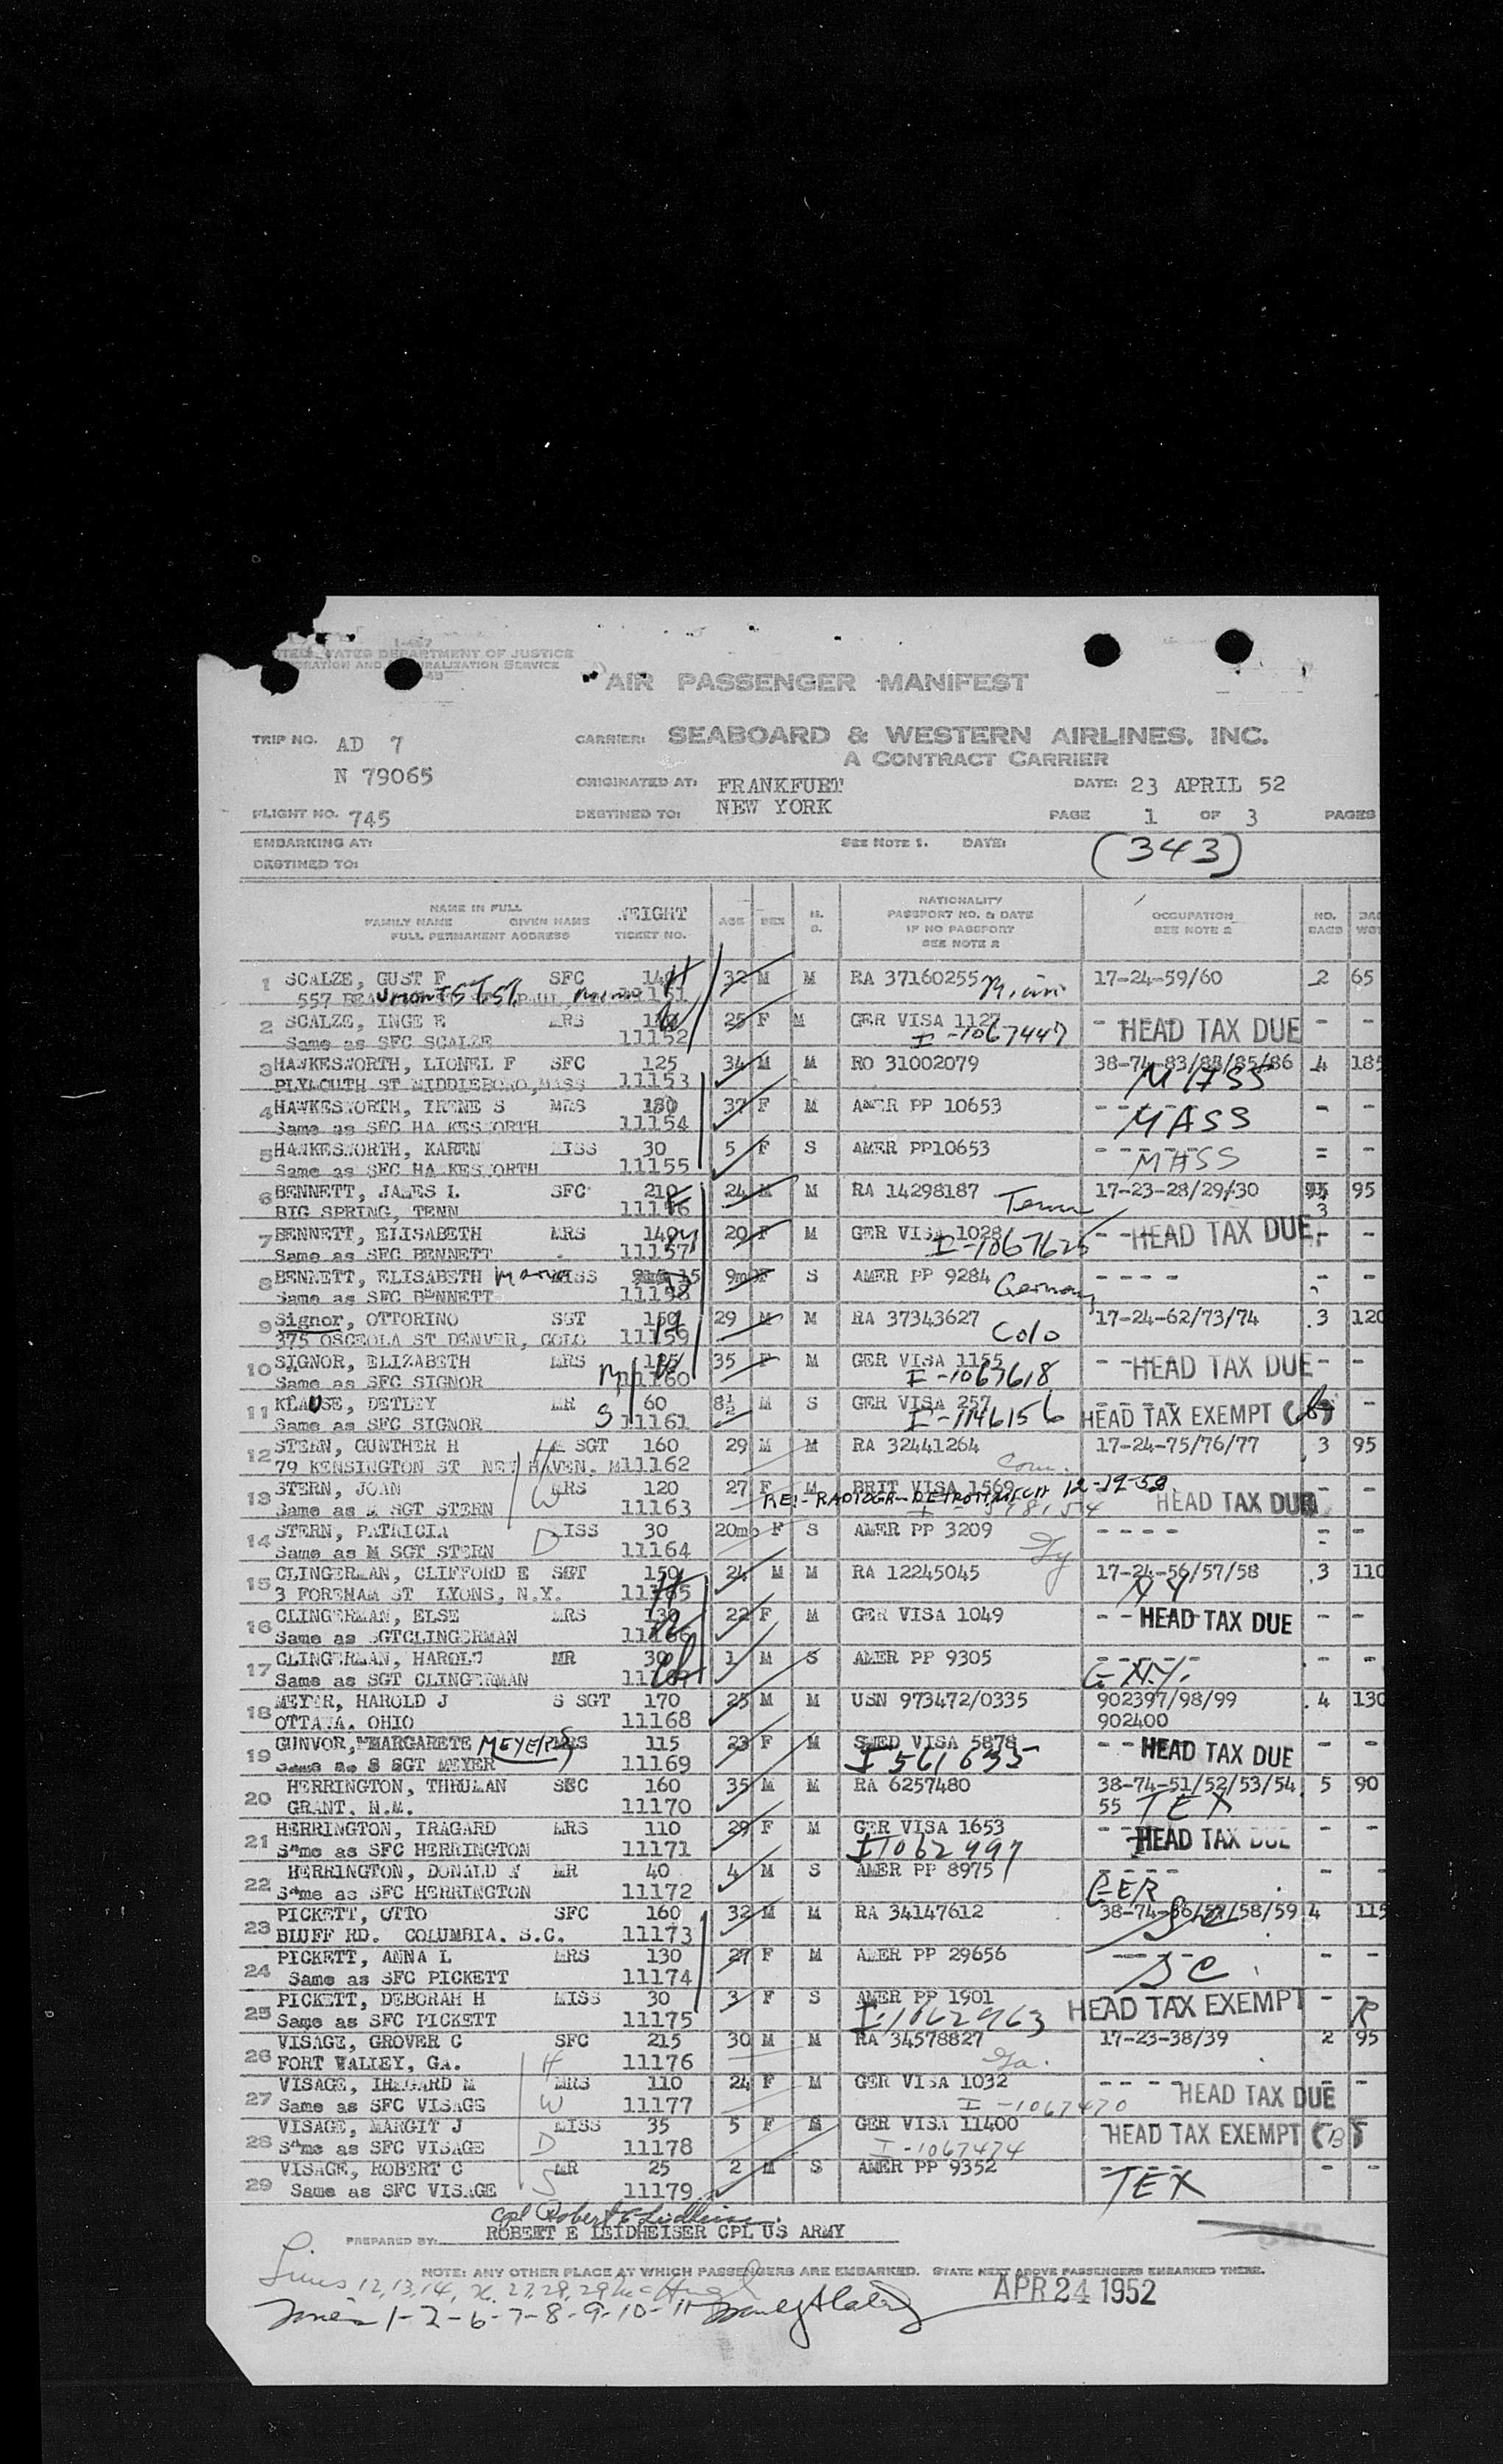 I-457
UNITED STATES DEPARTMENT OF JUSTICE
IMMIGRATION AND NATURALIZATION SERVICE
AIR PASSENGER MANIFEST
TRIP NO. AD 7 CARRIER: SEABOARD & WESTERN AIRLINES, INC.
A CONTRACT CARRIER
N 79065 ORIGINATED AT: FRANKFURT DATE: 23 APRIL 52
FLIGHT NO. 745 DESTINED TO: NEW YORK PAGE 1 OF 3 PAGES
EMBARKING AT: SEE NOTE 1. DATE: (343)
DESTINED TO:
NAME IN FULL WEIGHT AGE SEX M. S. NATIONALITY OCCUPATION NO. BAGS BAG WGT
FAMILY NAME GIVEN NAME TICKET NO. PASSPORT NO. & DATE SEE NOTE 2
FULL PERMANENT ADDRESS IF NO PASSPORT
SEE NOTE 2
1 SCALZE, GUST F SFC 140 H 32 M M RA 37160255 Minn 17-24-59/60 2 65
557 BEAUMONT ST ST. PAUL, 11151
2 SCALZE, INGE E MRS W 25 F M GER VISA 1127 - - HEAD TAX DUE - -
Same as SFC SCALZE 11152 I-1067447
3 HAWKESWORTH, LIONEL F SFC 125 34 M M RO 31002079 38-74-83/84/85/86 4 185
PLYMOUTH ST MIDDLEBORO, MASS 11153 MASS
4 HAWKESWORTH, IRENE S MRS 130 37 F M AMER PP 10653 - - - - - -
Same as SFC HAWKESWORTH 11154 MASS
5 HAWKESWORTH, KAREN MISS 30 5 F S AMER PP10653 - - - - - -
Same as SFC HAWKESWORTH 11155 MASS
6 BENNETT, JAMES L SFC 210 24 M M RA 14298187 Tenn 17-23-28/29/30 3 95
BIG SPRING, TENN 11156
7 BENNETT, ELISABETH MRS 140 20 F M GER VISA 1028 - - HEAD TAX DUE - -
Same as SFC BENNETT 11157 I-1067625
8 BENNETT, ELISABETH Maria MISS 15 9m F S AMER PP 9284 Germany - - - - - -
Same as SFC BENNETT 11158
9 Signor, OTTORINO SGT 150 29 M M RA 37343627 17-24-62/73/74 3 120
375 OSCEOLA ST DENVER, COLO 11159 Colo
10 SIGNOR, ELIZABETH MRS W 35 F M GER VISA 1155 - - HEAD TAX DUE - -
Same as SFC SIGNOR 11160 I-1067618
11 KLAUSE, DETLEY MR 60 8½ M S GER VISA 257 - - - - -
Same as SFC SIGNOR S 11161 I-1146156 HEAD TAX EXEMPT
12 STERN, GUNTHER H M SGT 160 29 M M RA 32441264 17-24-75/76/77 3 95
79 KENSINGTON ST NEW HAVEN, 11162 H Conn.
13 STERN, JOAN MRS 120 27 F M BRIT VISA 1569 12-19-52 - -
Same as M SGT STERN W 11163 RE:- RADIOGR- DETROIT MICH HEAD TAX DUE
14 STERN, PATRICIA MISS 30 20mo F S AMER PP 3209 - - - - - -
Same as M SGT STERN D 11164 Gy
15 CLINGERMAN, CLIFFORD E SGT 150 24 M M RA 12245045 17-24-56/57/58 3 110
3 FOREHAM ST LYONS, N.Y. 11165 H NY
16 CLINGERMAN, ELSE MRS 130 22 F M GER VISA 1049 - - HEAD TAX DUE - -
Same as SGTCLINGERMAN 11166 W
17 CLINGERMAN, HAROLD MR 30 1 M S AMER PP 9305 - - - - - -
Same as SGT CLINGERMAN 11167 Ch
18 MEYER, HAROLD J S SGT 170 25 M M USN 973472/0335 902397/98/99 4 130
OTTAWA, OHIO 11168 902400
19 GUNVOR, MARGARETE MEYER MRS 115 23 F M SWED VISA 5878 - - HEAD TAX DUE - -
Same as S SGT MEYER 11169 I 561635
20 HERRINGTON, THRUMAN SFC 160 35 M M RA 6257480 38-74-51/52/53/54 5 90
GRANT, N.M. 11170 55 TEX
21 HERRINGTON, IRAGARD MRS 110 29 F M GER VISA 1653 - - HEAD TAX DUE - -
Same as SFC HERRINGTON 11171 I1062997
22 HERRINGTON, DONALD MR 40 4 M S AMER PP 8975 - - - - - -
Same as SFC HERRINGTON 11172 GER
23 PICKETT, OTTO SFC 160 32 M M RA 34147612 38-74-56/57/58/59 4 115
BLUFF RD. COLUMBIA, S.C. 11173
24 PICKETT, ANNA L MRS 130 27 F M AMER PP 29656 - - - - -
Same as SFC PICKETT 11174 SC
25 PICKETT, DEBORAH H MISS 30 3 F S AMER PP 1901 HEAD TAX EXEMPT - -
Same as SFC PICKETT 11175 I-1062963 R
26 VISAGE, GROVER C SFC 215 30 M M RA 34578827 17-23-38/39 2 95
FORT VALLEY, GA. H 11176 Ga.
27 VISAGE, IRMGARD M MRS 110 24 F M GER VISA 1032 - - - HEAD TAX DUE - -
Same as SFC VISAGE W 11177 I-1067470
28 VISAGE, MARGIT J MISS 35 5 F S GER VISA 11400 HEAD TAX EXEMPT
Same as SFC VISAGE D 11178 I-1067474
29 VISAGE, ROBERT C MR 25 2 M S AMER PP 9352 - - - - - -
Same as SFC VISAGE S 11179 TEX
Cpl Robert E Leidheiser
PREPARED BY: ROBERT E LEIDHEISER CPL US ARMY
NOTE: ANY OTHER PLACE AT WHICH PASSENGERS ARE EMBARKED. STATE NEXT ABOVE PASSENGERS EMBARKED THERE.
Lines 12, 13, 14, 26, 27, 28, 29 APR 24 1952
Lines 1-2-6-7-8-9-10-11